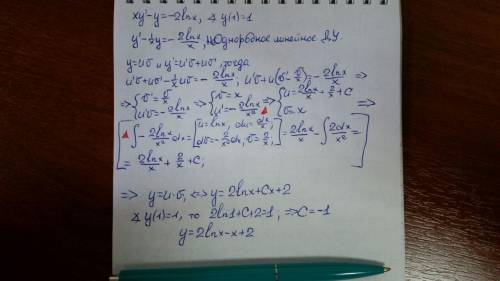 xy'-y=-2lnx, ∢ y(1)=1
y'-1/x y=-2lnx/x, неоднородное линейное Д.У.
y=uv и y'=u'v+uv', тогда
u'v+uv'-1/x uv=-2lnx/x; u'v+u(v'-v/x)=-2lnx/x ⇒
⇒ {v'=v/x; u'v=-2lnx/x ⇒ {v=x; u'=-2lnx/x² ⇒ {u=2lnx/x+2/x+C; v=x ⇒
[∫-2lnx/x² dx=[u=lnx, du=dx/x; dv=-2/x² dx, v=2/x]=2lnx/x-∫2dx/x²=
=2lnx/x+2/x+C;]
⇒ y=u·v, ⇔ y=2lnx+Cx+2
∢ y(1)=1, то 2ln1+C+2=1, ⇒C=-1
y=2lnx-x+2